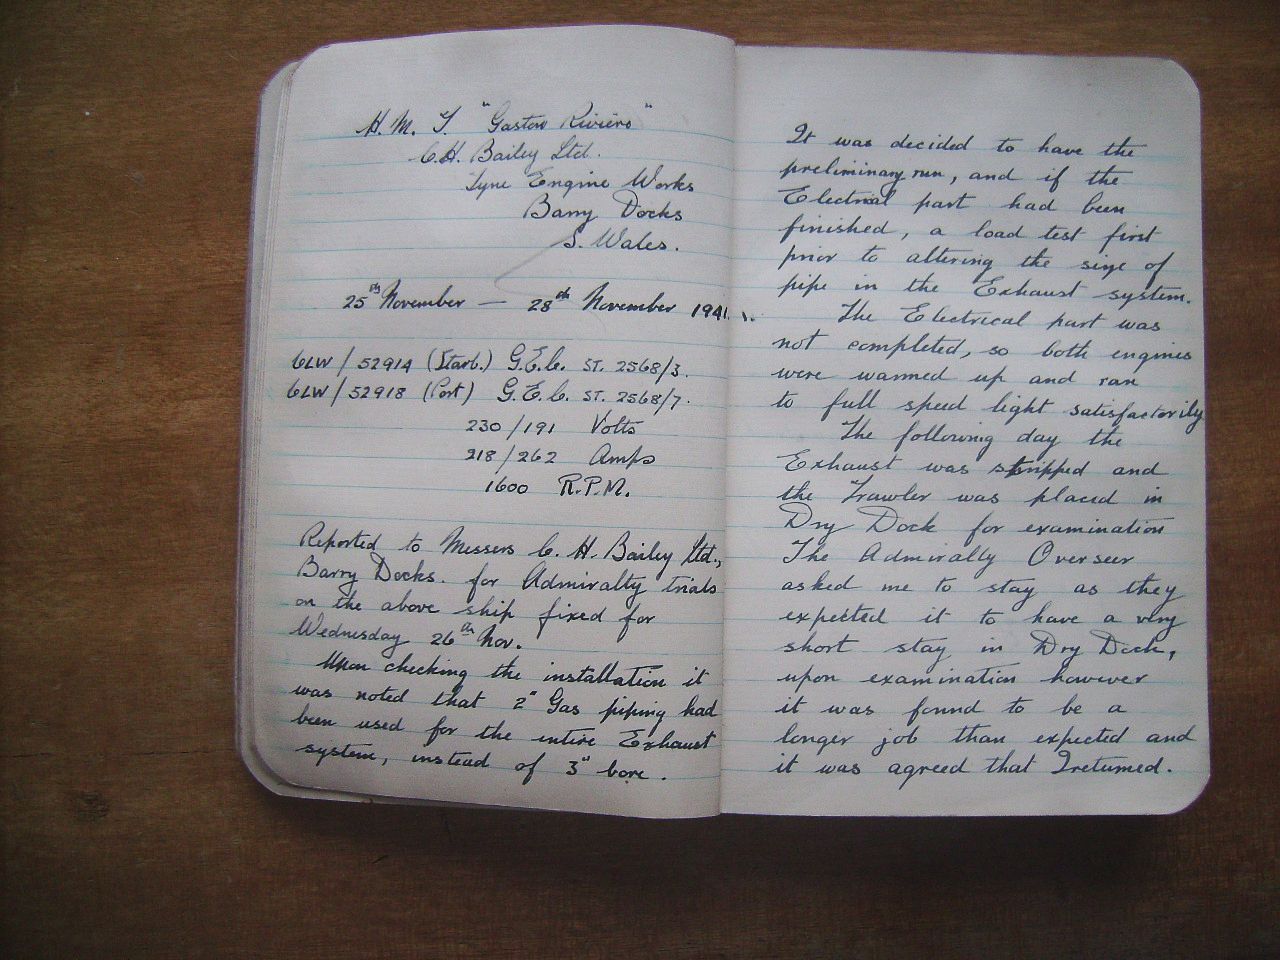 H. M. T. "Gaston Riviere"
C.H. Bailey Ltd.
Tyne Engine Works
Barry Docks
S. Wales.
25th November — 28th November 1941.
6LW / 52914 (Starb.) G.E.C. ST. 2568/3.
6LW / 52918 (Port) G.E.C. ST. 2568/7.
230/191 Volts
218/262 Amps
1600 R.P.M.
Reported to Messers C. H. Bailey Ltd.,
Barry Docks. for Admiralty trials
on the above ship fixed for
Wednesday 26th Nov.
Upon checking the installation it
was noted that 2" Gas piping had
been used for the entire Exhaust
system, instead of 3" bore.
It was decided to have the
preliminary run, and if the
Electrical part had been
finished, a load test first
prior to altering the size of
pipe in the Exhaust system.
The Electrical part was
not completed, so both engines
were warmed up and ran
to full speed light satisfactorily
The following day the
Exhaust was stripped and
the Trawler was placed in
Dry Dock for examination
The Admiralty Overseer
asked me to stay as they
expected it to have a very
short stay in Dry Dock,
upon examination however
it was found to be a
longer job than expected and
it was agreed that I returned.